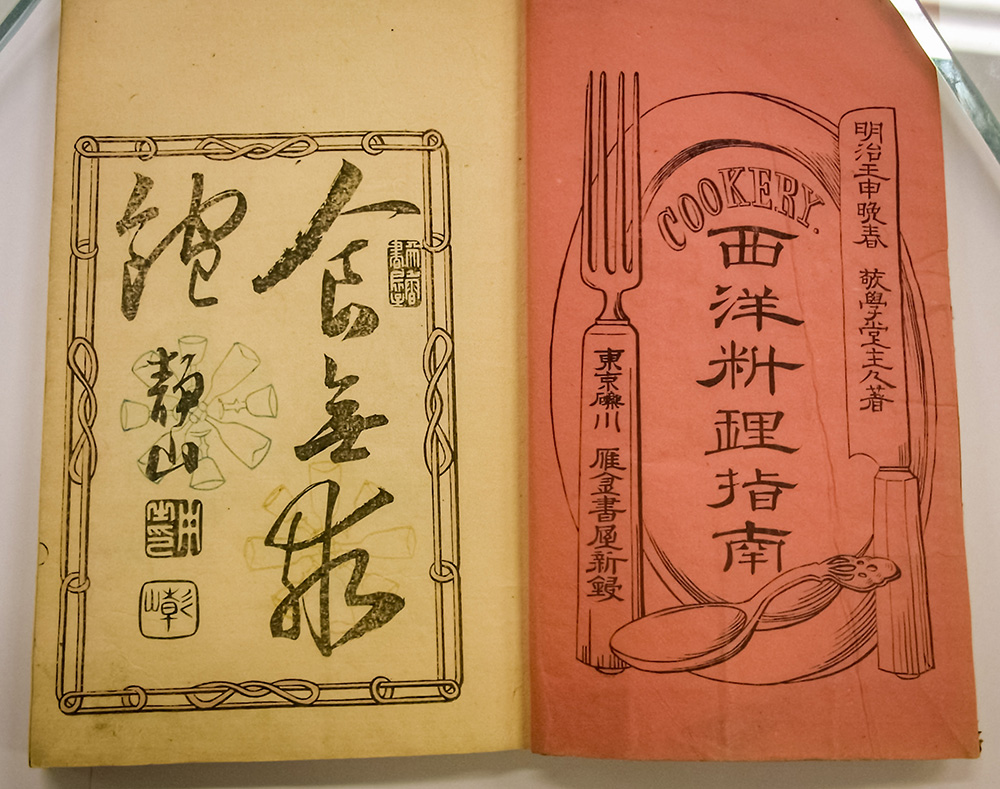 COOKERY.
明治壬申晚春 敬學堂主人著
西洋料理指南
東京礫川 雁金書屋新鋟
食無求
飽
靜山